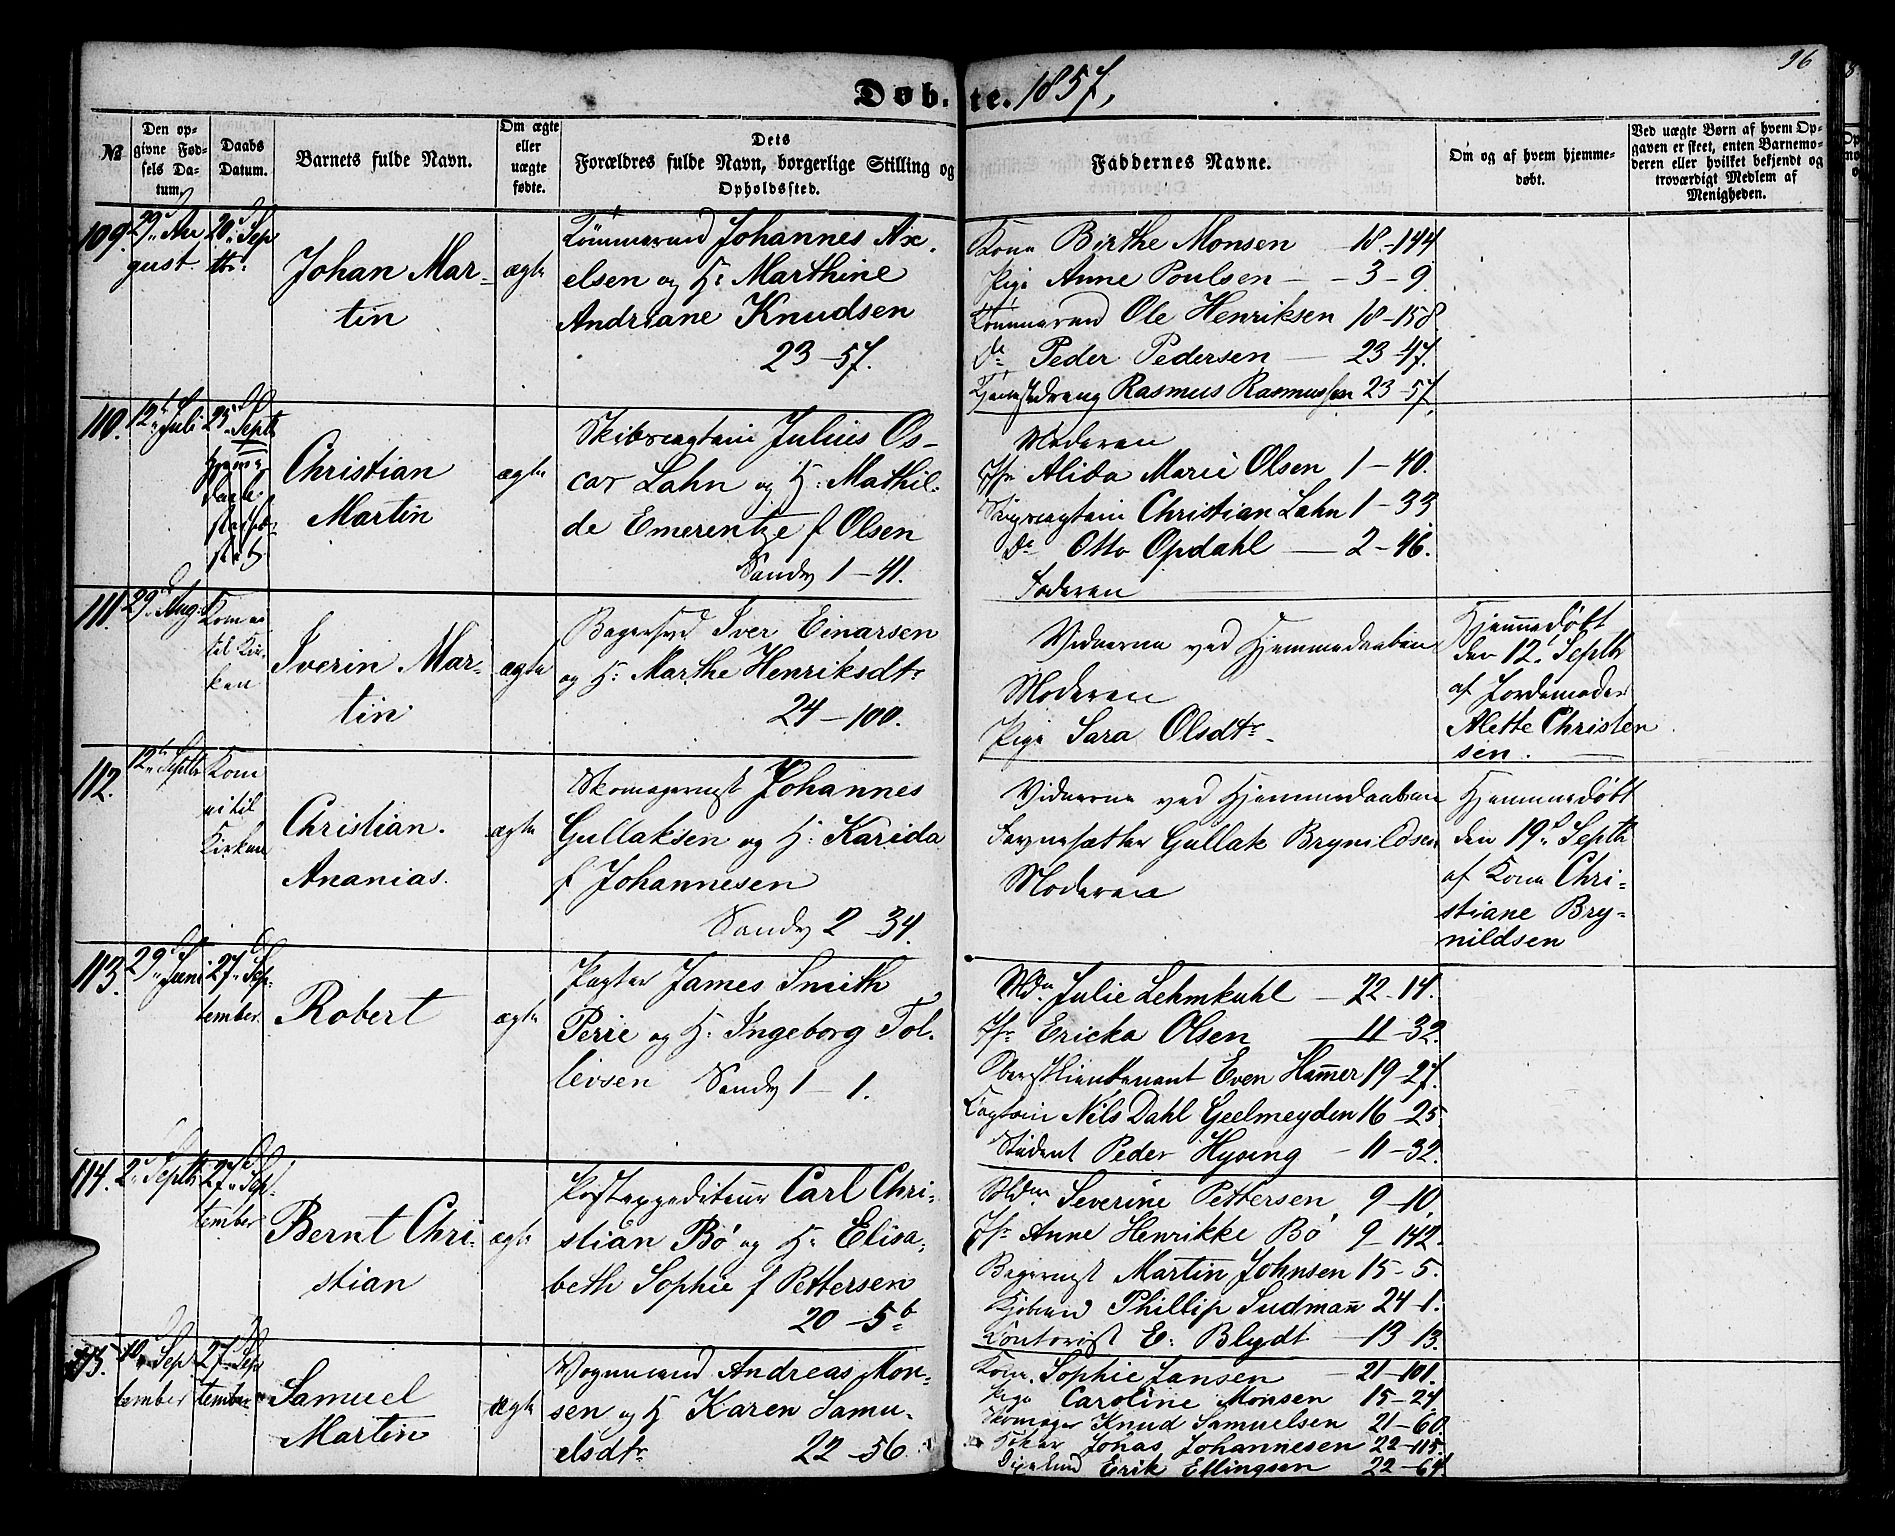 96
Døb-te. 1857,
№
Den op-
givne Fød-
sels Da-
tum.
Daabs
Datum.
Barnets fulde Navn.
Om ægte
eller
uægte
fødte.
Dets
Forældres fulde Navn, borgerlige Stilling og
Opholdssted.
Faddernes Navne.
Om og af hvem hjemme-
døbt.
Ved uægte Børn af hvem Op-
gaven er skeet, enten Barnemo-
deren eller hvilket bekjendt og
troværdigt Medlem af
Menigheden.
109. 29 Au
gust.
20 Sep
tbr.
Johan Mar-
tin
ægte
Tømmermd Johannes Ax.
elsen og H: Marthine
Andriane Knudsen
23-57.
Kone Birthe Monsen - 18-144.
Pige Anne Poulsen - 3-9.
Tømmermd Ole Henriksen 18-158.
Do Peder Pedersen - 23-47.
Tjenestedreng Rasmus Rasmussen 23-57.
110. 12 Juli
25 Septb
Christian
Martin
ægte
Skibscaptain Julius Os-
car Lahn og H: Mathil-
de Emerentze f Olsen
Sandv 1-41.
Moderen
Jfr Alida Marie Olsen 1-40.
Skibscaptain Christian Lahn 1-33
Do Otto Opdahl - 2-46.
Faderen
111. 29 Aug.
Kom ei
til Kir-
ken
Iverin Mar-
tin
ægte
Bagersvd Iver Einarsen
og H: Marthe Henriksdtr
24-100.
Vidnerne ved Hjemmedaaben
Moderen
Pige Sara Olsdtr
Hjemmedøbt
den 12 Septb
af Jordemoder
Alette Christen
sen.
112. 12 Septb
Kom
ei til
Kirken
Christian.
Ananias.
ægte
Skomagermst Johannes
Gullaksen og H: Karida
f Johannesen
Sandv 2-34.
Vidnerne ved Hjemmedaaben
Gullak Brynildsen
Moderen
Hjemmedøbt
den 19 Septb
af Kone Chri-
stiane Bry-
nildsen
113. 29 Juni
27 Sep-
tember.
Robert
ægte
Pagter James Smith
Perie og H: Ingeborg Tol-
levsen Sandv 1-1.
Md. Julie Lehmkuhl - 22-14.
Jfr Ericka Olsen 11-32.
Oberstlieutenant Even Hamer 19-27.
Captain Nils Dahl Geelmeyden 16-25.
Student Peder Hysing - 11-32.
114. 2 Septb
27 Sep-
tember
Bernt Chri-
stian
ægte
Postexpediteur Carl Chri-
stian Bø og H: Elisa-
beth Sophie f Pettersen
20-5b
Mdm Severine Pettersen 9-10.
Jfr Anne Henrikke Bø 9-142.
Bagermst Martin Johnsen 15-5.
Kjøbmd Phillip Sudmann 24-1.
Contorist E: Blydt - 13-13.
115. 10 Sep
tember
27 Sep
tember
Samuel
Martin
ægte
Vognmand Andreas Mon-
sen og H Karen Samu-
elsdtr 22-56.
Kone Sophie Jansen - 21-101.
Pige Caroline Monsen 15-24.
Skomager Knud Samuelsen 21-60.
Jonas Johannesen 22-115.
Erik Ellingsen 22-64.